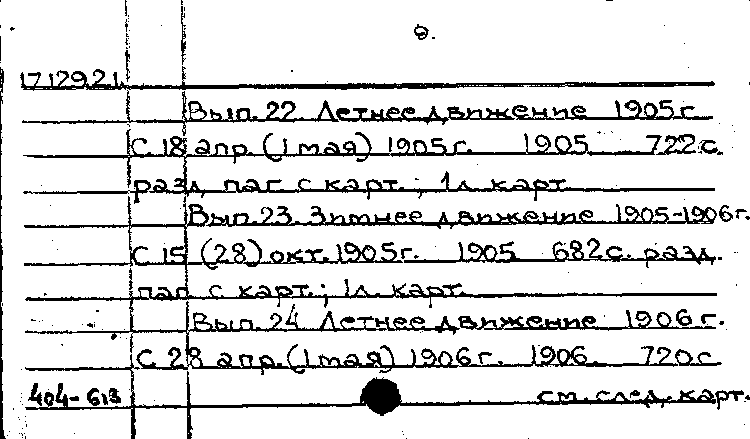 9.
17129.21.
Вып. 22. Летнее движение 1905 г.
С 18 апр. (1 мая) 1905 г. 1905. 722 с.
разд. паг. с карт.; 1 л. карт.
Вып. 23. Зимнее движение 1905-1906 г.
С 15 (28) окт. 1905 г. 1905 682 с. разд.
паг. с карт.; 1 л. карт.
Вып. 24. Летнее движение 1906 г.
С 28 апр. (1 мая) 1906 г. 1906. 720 с
404-613
см. след. карт.